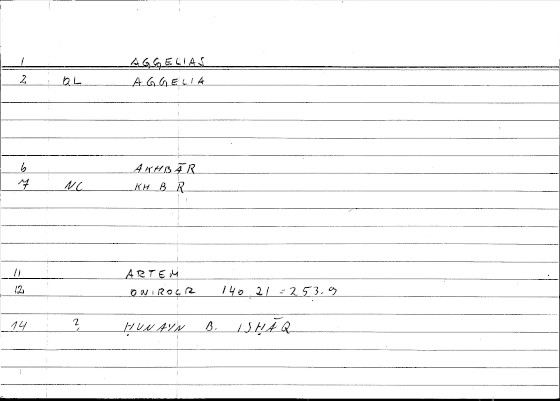 1 AGGELIAS
2 QL AGGELIA
6 AKHBĀR
7 NC KH B R
11 ARTEM
12 ONIROCR 140 21 = 253.9
14 ? ḤUNAYN B. ISḤĀQ